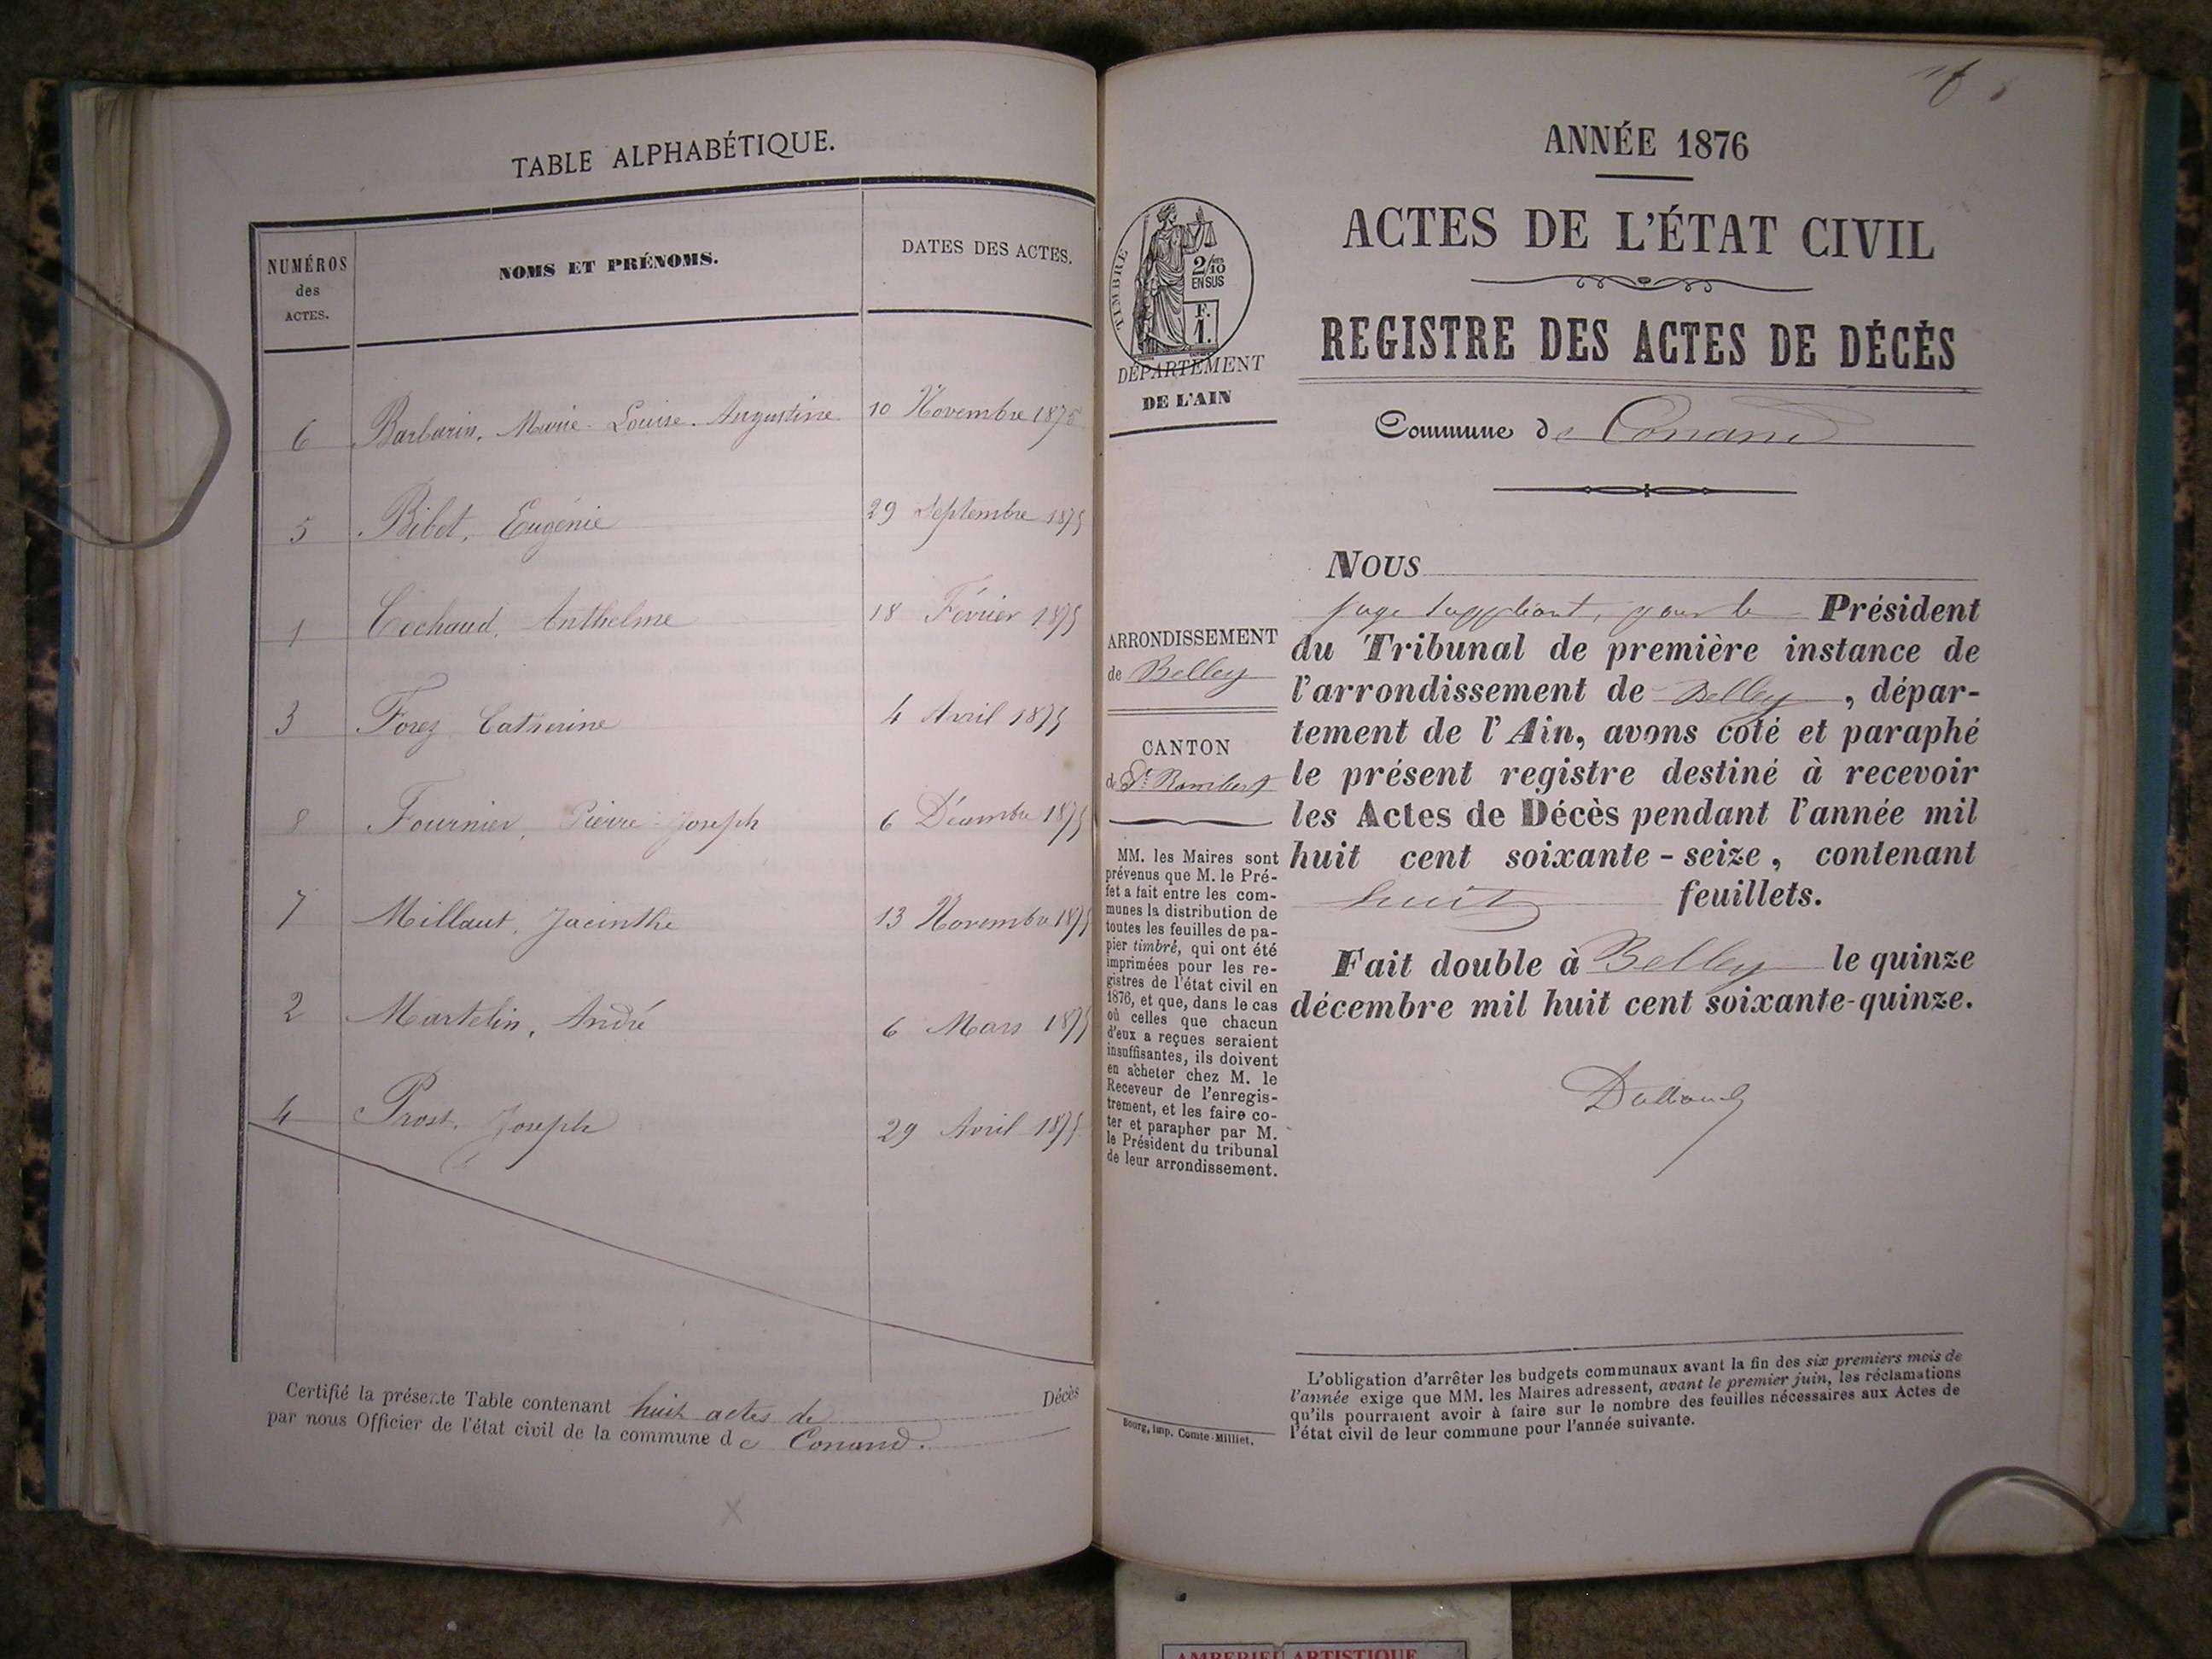 TABLE ALPHABÉTIQUE.
NUMÉROS
des
ACTES.
NOMS ET PRÉNOMS.
DATES DES ACTES.
6 Barbarin, Marie-Louise-Augustine 10 Novembre 1875
5 Bibet, Eugénie 29 Septembre 1875
1 Cochaud, Anthelme 18 Février 1875
3 Forez Catherine 4 Avril 1875
8 Fournier, Pierre-Joseph 6 Décembre 1875
7 Millaut, Jacinthe 13 Novembre 1875
2 Martelin, André 6 Mars 1875
4 Prost, Joseph 29 Avril 1875
Certifié la présente Table contenant huit actes de Décès
par nous Officier de l'état civil de la commune de Conand.
ANNÉE 1876
ACTES DE L'ÉTAT CIVIL
REGISTRE DES ACTES DE DÉCÈS
Commune de Conand
TIMBRE
2/10
EN SUS
F.
1.
DÉPARTEMENT
DE L'AIN
ARRONDISSEMENT
de Belley
CANTON
de St Rambert
MM. les Maires sont
prévenus que M. le Pré-
fet a fait entre les com-
munes la distribution de
toutes les feuilles de pa-
pier timbré, qui ont été
imprimées pour les re-
gistres de l'état civil en
1876, et que, dans le cas
où celles que chacun
d'eux a reçues seraient
insuffisantes, ils doivent
en acheter chez M. le
Receveur de l'enregis-
trement, et les faire co-
ter et parapher par M.
le Président du tribunal
de leur arrondissement.
Bourg, imp. Comte-Milliet.
NOUS
juge suppléant, pour le Président
du Tribunal de première instance de
l'arrondissement de Belley, dépar-
tement de l'Ain, avons coté et paraphé
le présent registre destiné à recevoir
les Actes de Décès pendant l'année mil
huit cent soixante-seize, contenant
huit feuillets.
Fait double à Belley le quinze
décembre mil huit cent soixante-quinze.
L'obligation d'arrêter les budgets communaux avant la fin des six premiers mois de
l'année exige que MM. les Maires adressent, avant le premier juin, les réclamations
qu'ils pourraient avoir à faire sur le nombre des feuilles nécessaires aux Actes de
l'état civil de leur commune pour l'année suivante.
AMBERIEU ARTISTIQUE